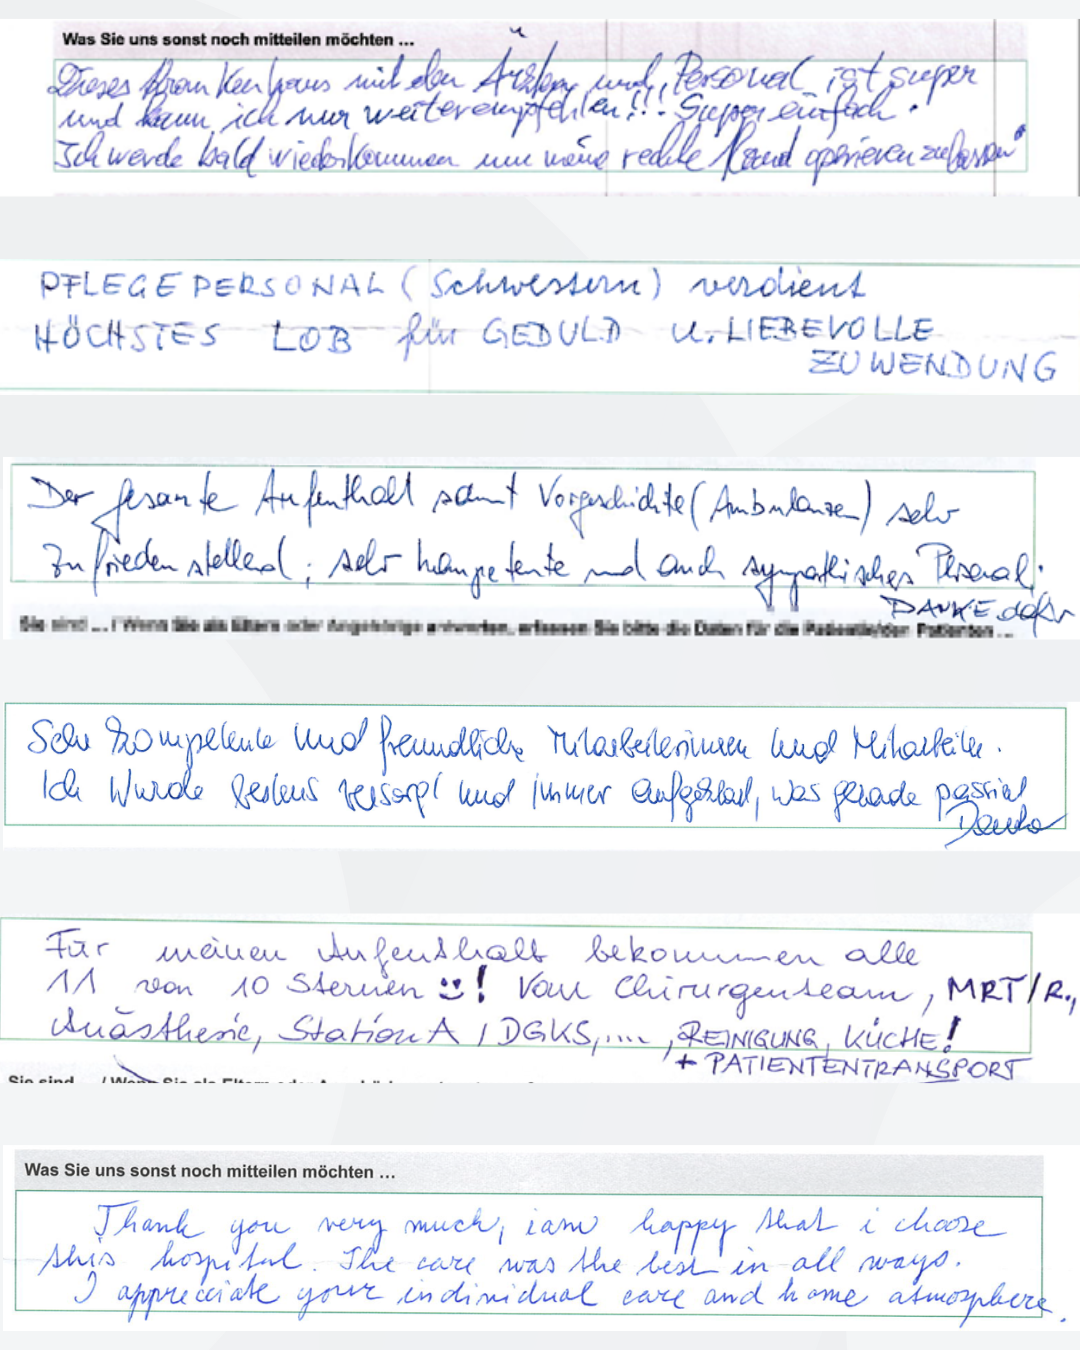 Was Sie uns sonst noch mitteilen möchten ...
Dieses Krankenhaus mit den Ärzten und Personal ist super
und kann ich nur weiterempfehlen!!! Super einfach.
Ich werde bald wiederkommen um meine rechte Hand operieren zu lassen
PFLEGEPERSONAL (Schwestern) verdient
HÖCHSTES LOB für GEDULD u. LIEBEVOLLE
ZUWENDUNG
Der gesamte Aufenthalt samt Vorgeschichte (Ambulanzen) sehr
zufriedenstellend; sehr kompetente und auch sympathisches Personal.
DANKE dafür
Sie sind ... / Wenn Sie als Eltern oder Angehörige antworten, erfassen Sie bitte die Daten für die Patientin/den Patienten ...
Sehr kompetente und freundliche Mitarbeiterinnen und Mitarbeiter.
Ich wurde bestens versorgt und immer aufgeklärt, was gerade passiert
Danke
Für meinen Aufenthalt bekommen alle
11 von 10 Sternen! Vom Chirurgenteam, MRT/R.,
Anästhesie, Station A / DGKS, ...., REINIGUNG, KÜCHE!
+ PATIENTENTRANSPORT
Was Sie uns sonst noch mitteilen möchten ...
Thank you very much, i am happy that i choose
this hospital. The care was the best in all ways.
I appreciate your individual care and home atmosphere.